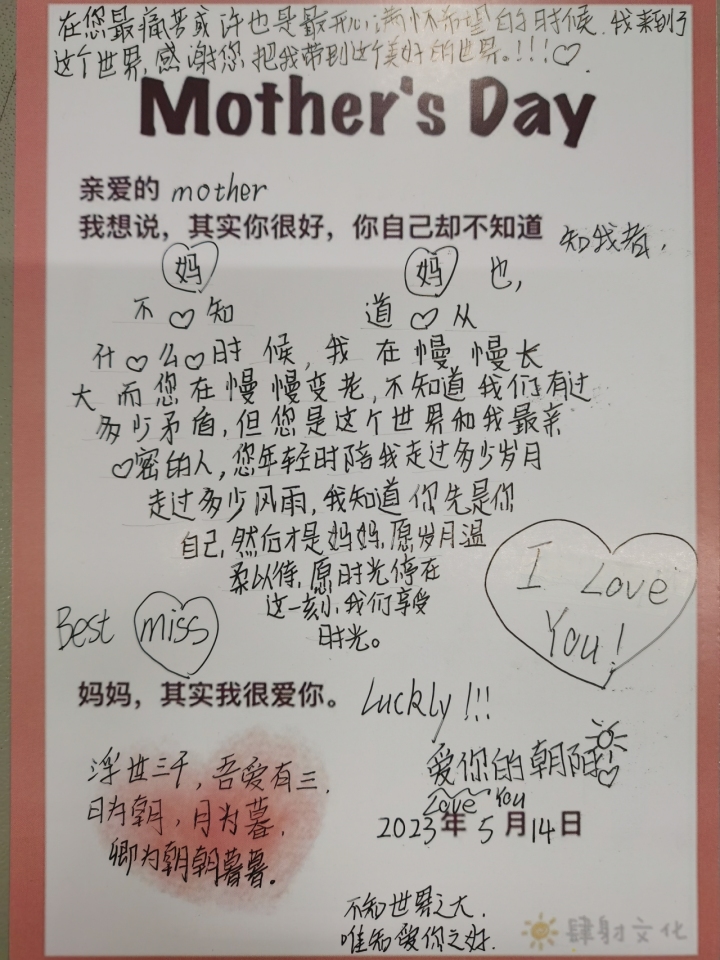 在您最痛苦或许也是最开心满怀希望的时候,我来到了
这个世界,感谢您把我带到这个美好的世界。!!!♡.
Mother's Day
亲爱的 mother
我想说，其实你很好，你自己却不知道 知我者,
妈 妈 也,
不♡知 道♡从
什♡么♡时候,我在慢慢长
大而您在慢慢变老,不知道我们有过
多少矛盾,但您是这个世界和我最亲
♡密的人,您年轻时陪我走过多少岁月
走过多少风雨,我知道你先是你
自己,然后才是妈妈,愿岁月温
柔以待,愿时光停在
这一刻,我们享受
时光。
I Love
You!
Best miss
妈妈，其实我很爱你。 Luckly!!!
浮世三千,吾爱有三.
日为朝,月为暮,
卿为朝朝暮暮。
爱你的朝阳♡
Love You
2023年5月14日
不知世界之大.
唯知爱你之好.
肆射文化